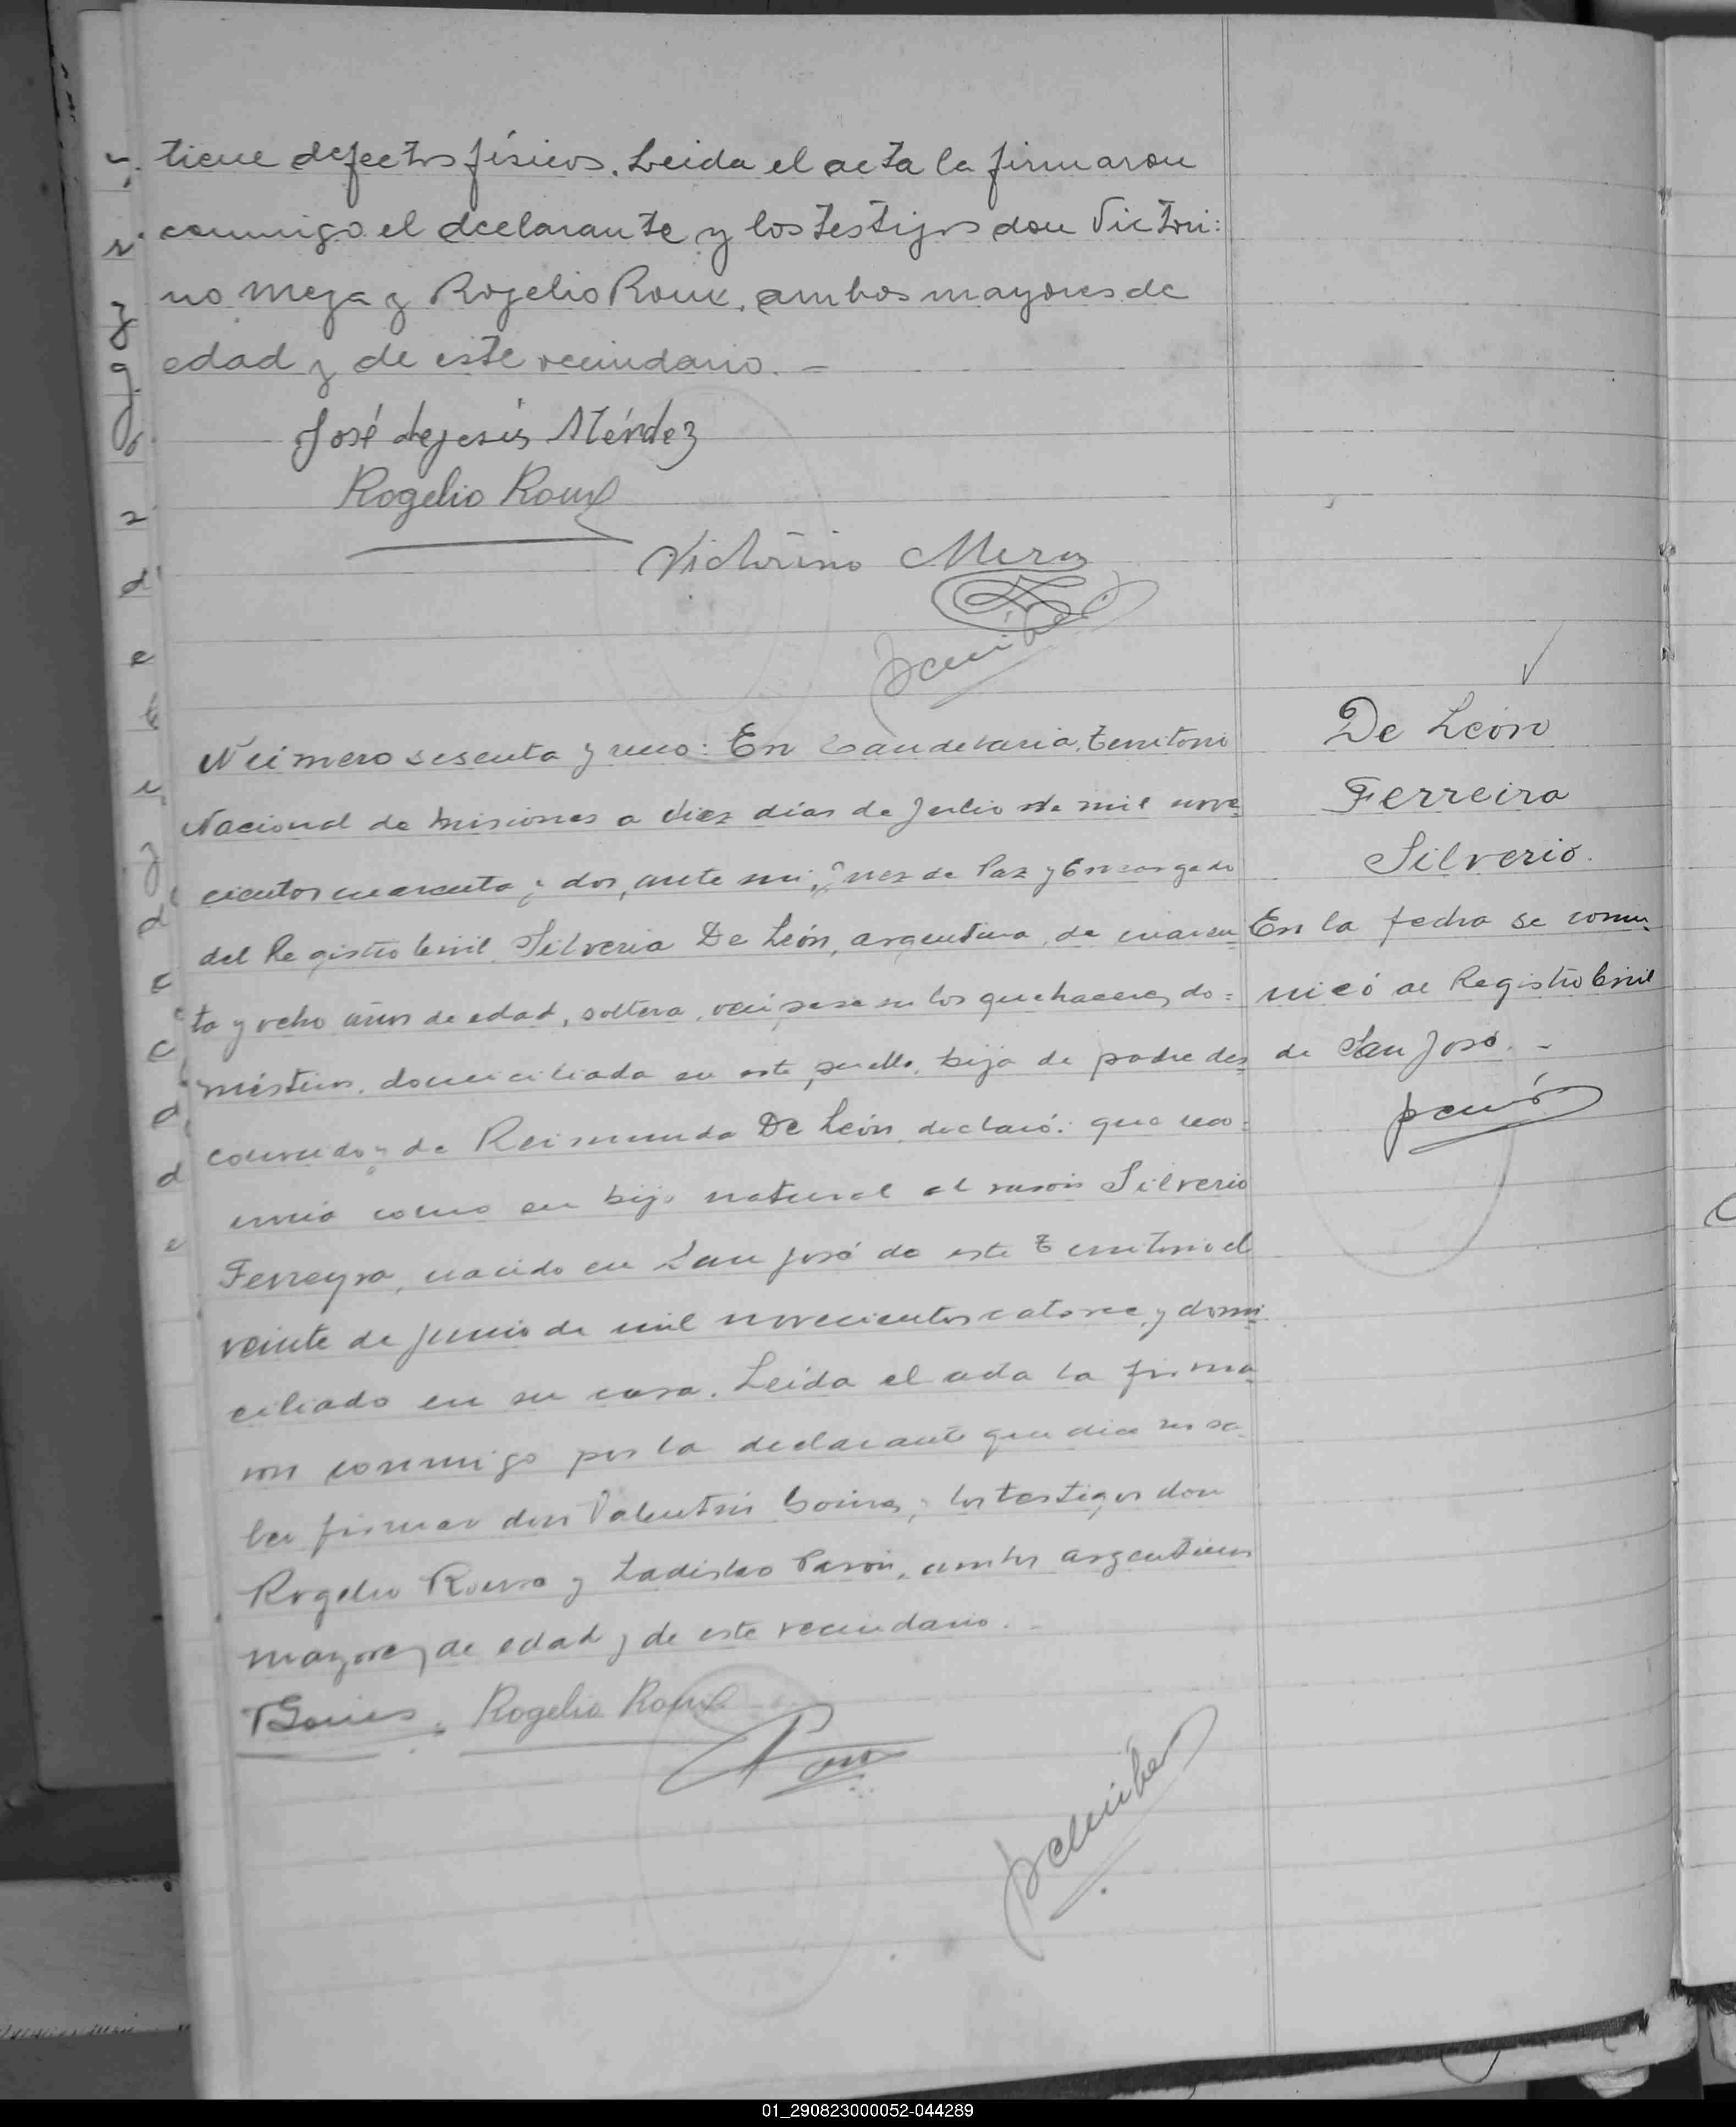 tiene defectos físicos. Leida el acta la firmaron
conmigo el declarante y los testigos don Victori:
no Meza y Rogelio Roux, ambos mayores de
edad y de este vecindario. —
José dejesús Méndez
Rogelio Roux
Victorino Meza
Número sesenta y uno: En Candelaria, Territorio
Nacional de Misiones a diez días de Julio de mil nove=
cientos cuarenta y dos, ante mi, Juez de Paz y Encargado
del Registro Civil, Silveria De León, argentina, de cuaren=
ta y ocho años de edad, soltera, ocúpase en los quehaceres do=
mésticos, domiciliada en este pueblo, hija de padre des=
conocido y de Reimunda De León, declaró: que reco=
nocia como su hijo natural al varón Silverio
Ferreyra, nacido en San José de este Territorio el
veinte de Junio de mil novecientos catorce, y domi=
ciliado en su casa. Leida el acta la firma=
ron conmigo por la declarante que dice no sa=
ber firmar don Valentín y los testigos don
Rogelio y Ladislao ambos argentinos
mayores de edad y de este vecindario. —
Rogelio Roux
De León
Ferreira
Silverio.
En la fecha se comu=
nicó al Registro Civil
de San José. —
01_290823000052-044289